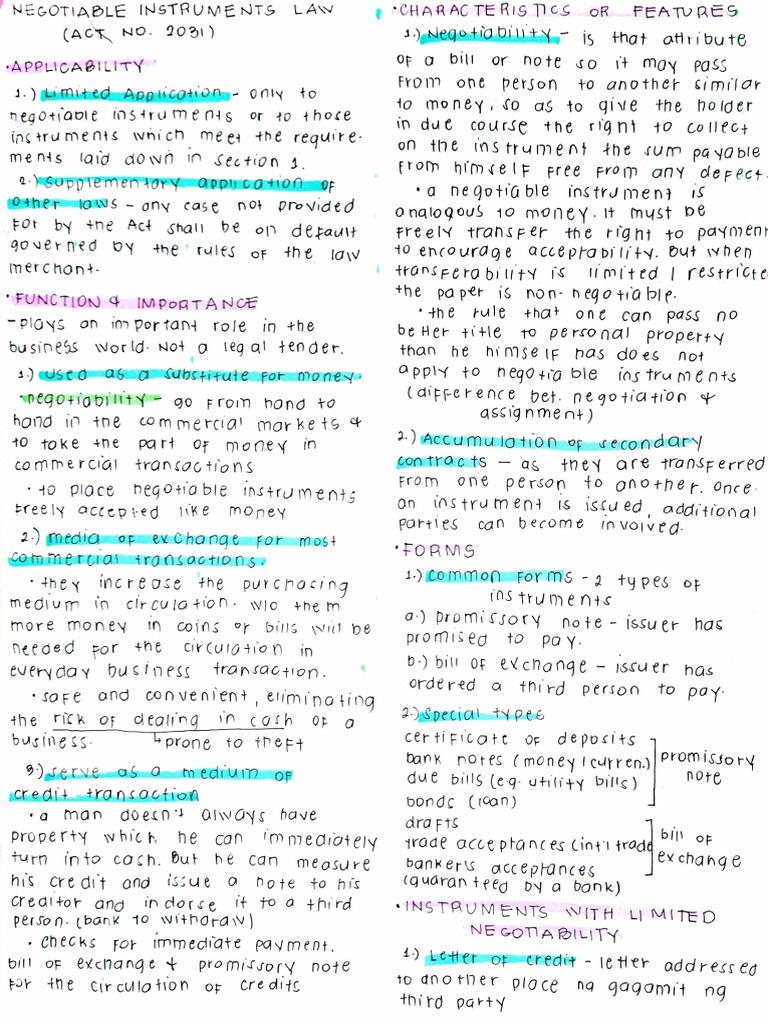 NEGOTIABLE INSTRUMENTS LAW
(ACT NO. 2031)
• APPLICABILITY
1.) Limited Application - only to
negotiable instruments or to those
instruments which meet the require-
ments laid down in section 1.
2.) supplementary application of
other laws - any case not provided
for by the Act shall be on default
governed by the rules of the law
merchant.
• FUNCTION & IMPORTANCE
- plays an important role in the
business world. Not a legal tender.
1.) used as a substitute for money.
• negotiability - go from hand to
hand in the commercial markets &
to take the part of money in
commercial transactions
• to place negotiable instruments
freely accepted like money
2.) media of exchange for most
commercial transactions.
• they increase the purchasing
medium in circulation. w/o them
more money in coins or bills will be
needed for the circulation in
everyday business transaction.
• safe and convenient, eliminating
the risk of dealing in cash of a
business. ↳ prone to theft
3.) serve as a medium of
credit transaction
• a man doesn't always have
property which he can immediately
turn into cash. But he can measure
his credit and issue a note to his
creditor and indorse it to a third
person. (bank to withdraw)
• checks for immediate payment.
bill of exchange & promissory note
for the circulation of credits
• CHARACTERISTICS OR FEATURES
1.) Negotiability - is that attribute
of a bill or note so it may pass
from one person to another similar
to money, so as to give the holder
in due course the right to collect
on the instrument the sum payable
from himself free from any defect.
• a negotiable instrument is
analogous to money. It must be
freely transfer the right to payment
to encourage acceptability. But when
transferability is limited / restricte
the paper is non-negotiable.
• the rule that one can pass no
better title to personal property
than he himself has does not
apply to negotiable instruments
(difference bet. negotiation &
assignment)
2.) Accumulation of secondary
contracts - as they are transferred
from one person to another. once
an instrument is issued, additional
parties can become involved.
• FORMS
1.) common forms - 2 types of
instruments
a.) promissory note - issuer has
promised to pay.
b.) bill of exchange - issuer has
ordered a third person to pay.
2.) special types
certificate of deposits
bank notes (money/curren.)
due bills (e.g. utility bills)
bonds (loan)
promissory
note
drafts
trade acceptances (int'l trade
banker's acceptances
(guaranteed by a bank)
bill of
exchange
• INSTRUMENTS WITH LIMITED
NEGOTIABILITY
1.) Letter of credit - letter addressed
to another place na gagamit ng
third party